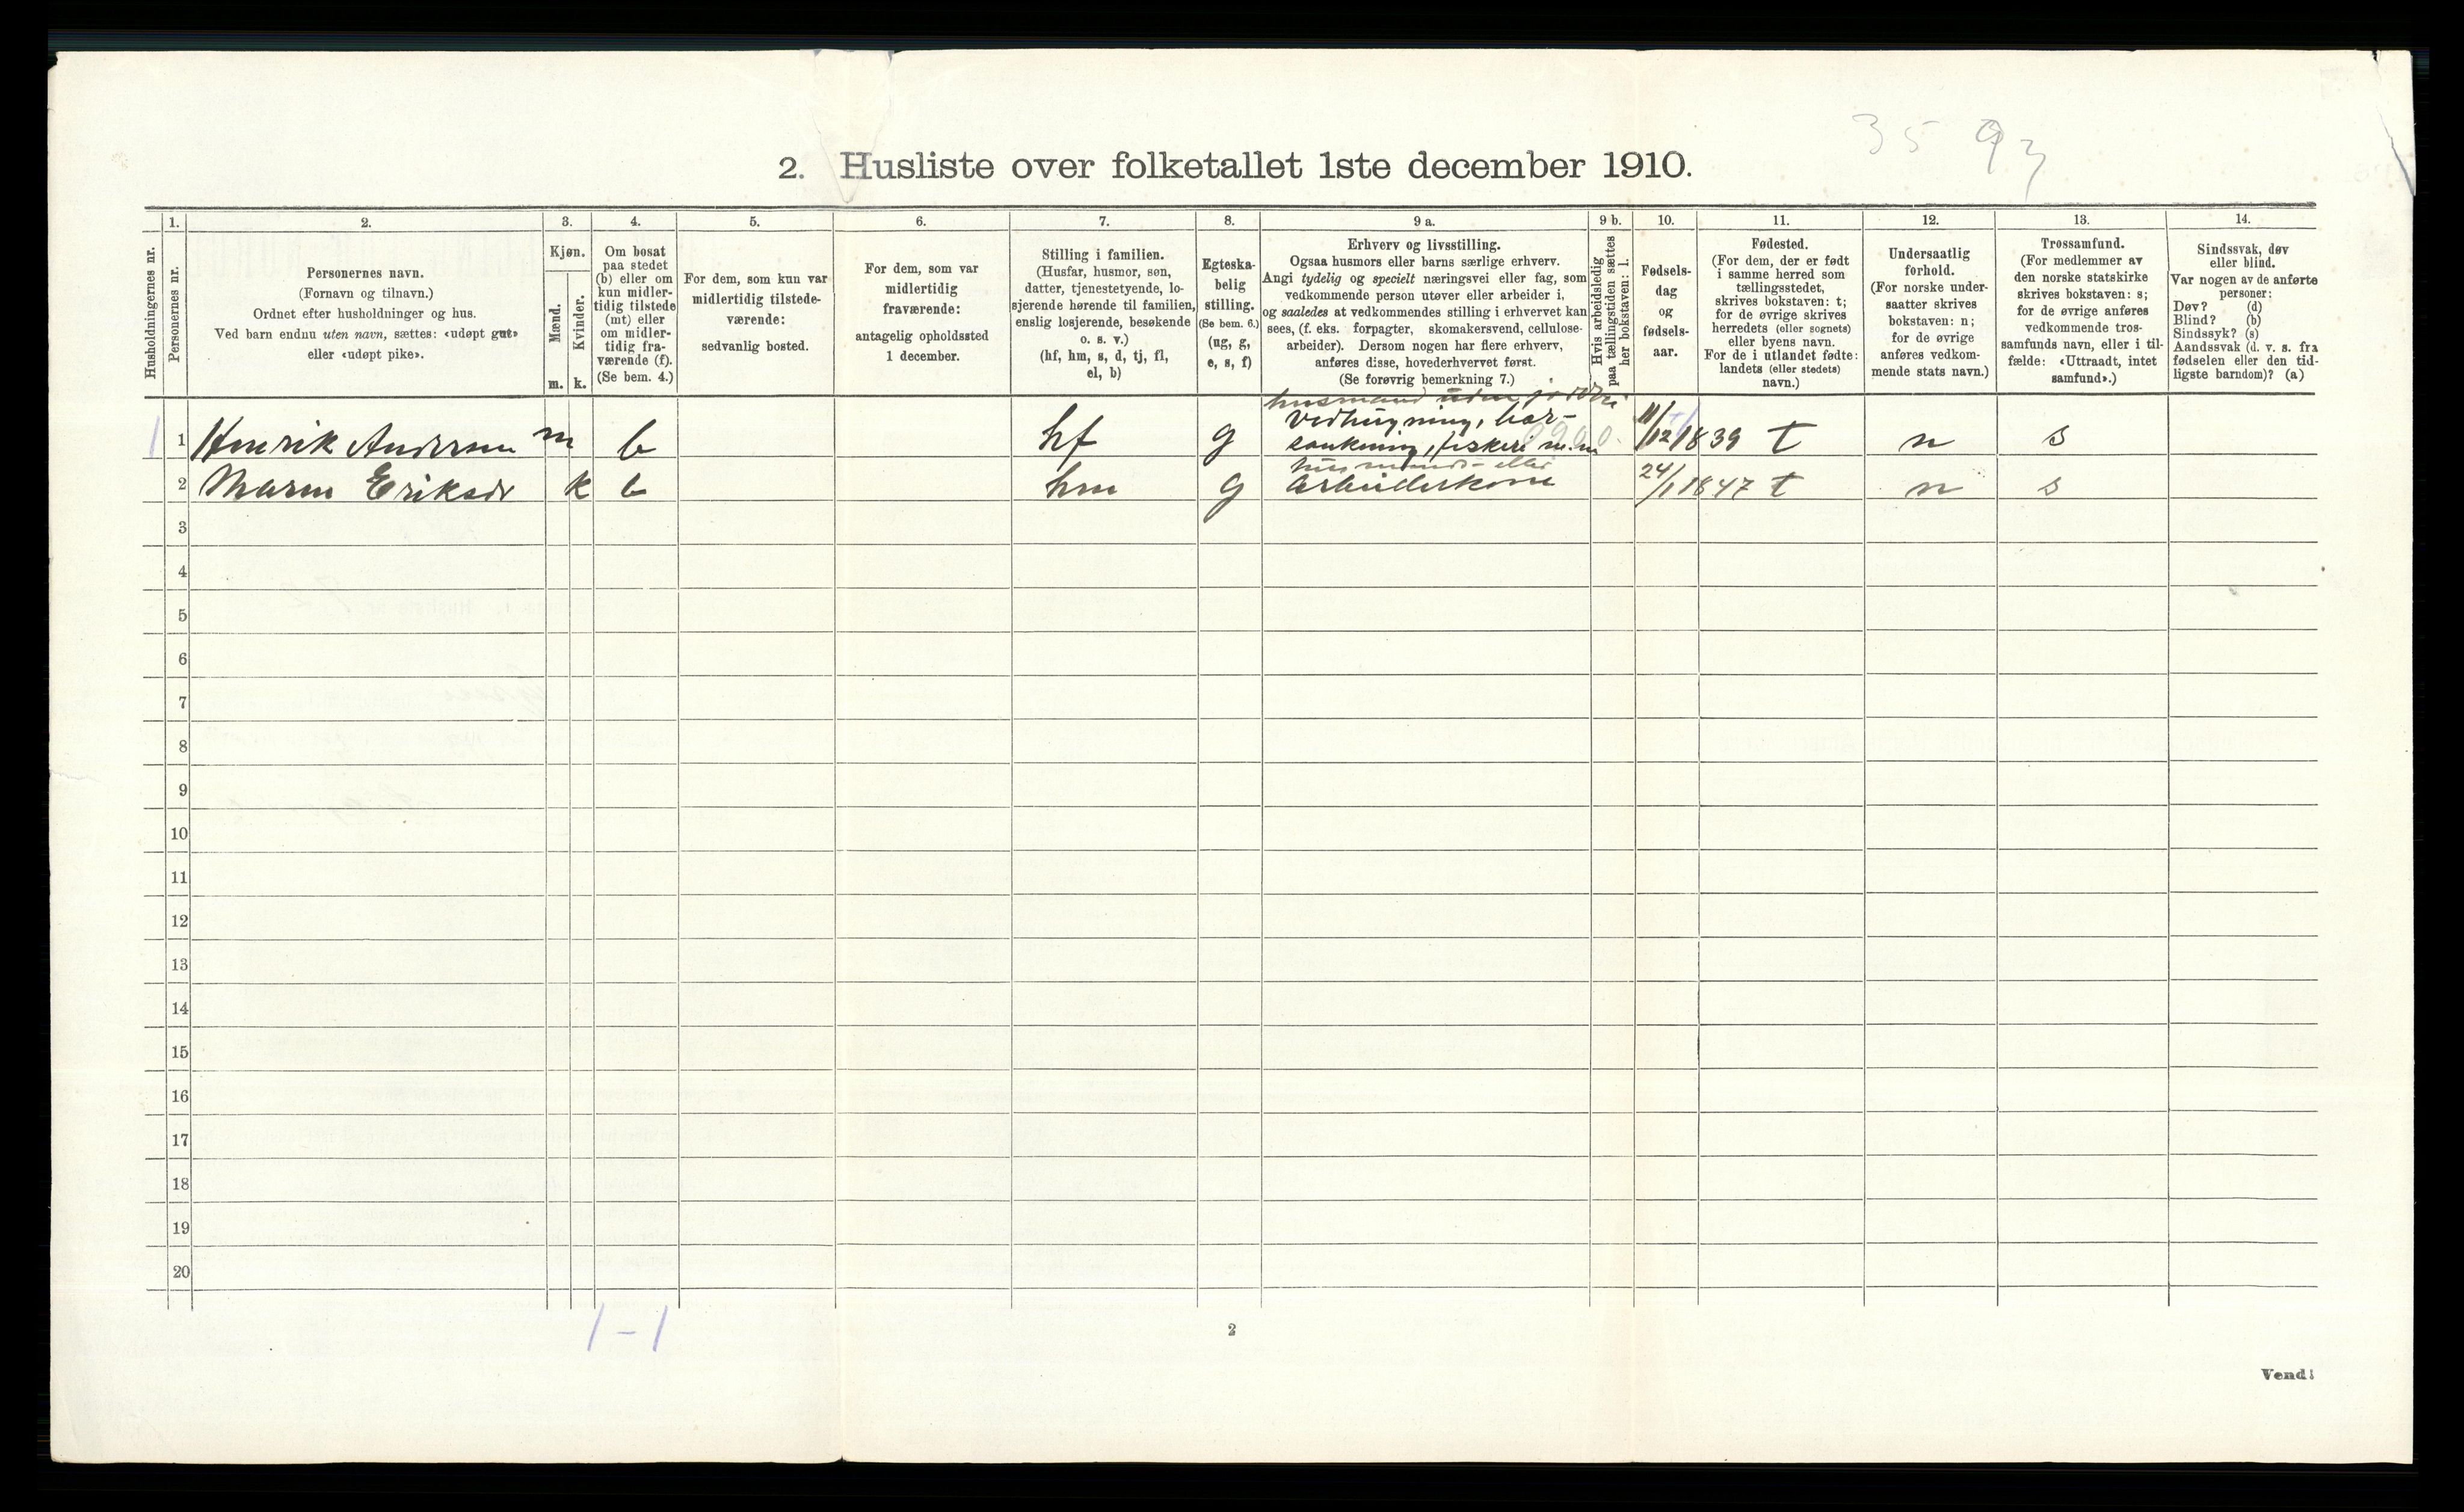 35 93
2. Husliste over folketallet 1ste december 1910.
Husholdningernes nr.
1.
Personernes nr.
2.
Personernes navn.
(Fornavn og tilnavn.)
Ordnet efter husholdninger og hus.
Ved barn endnu uten navn, sættes: «udøpt gut»
eller «udøpt pike».
3.
Kjøn.
Mænd.
m.
Kvinder.
k.
4.
Om bosat
paa stedet
(b) eller om
kun midler-
tidig tilstede
(mt) eller
om midler-
tidig fra-
værende (f).
(Se bem. 4.)
5.
For dem, som kun var
midlertidig tilstede-
værende:
sedvanlig bosted.
6.
For dem, som var
midlertidig
fraværende:
antagelig opholdssted
1 december.
7.
Stilling i familien.
(Husfar, husmor, søn,
datter, tjenestetyende, lo-
sjerende hørende til familien,
enslig losjerende, besøkende
o. s. v.)
(hf, hm, s, d, tj, fl,
el, b)
8.
Egteska-
belig
stilling.
(Se bem. 6.)
(ug, g,
e, s, f)
9 a.
Erhverv og livsstilling.
Ogsaa husmors eller barns særlige erhverv.
Angi tydelig og specielt næringsvei eller fag, som
vedkommende person utøver eller arbeider i,
og saaledes at vedkommendes stilling i erhvervet kan
sees, (f. eks. forpagter, skomakersvend, cellulose-
arbeider). Dersom nogen har flere erhverv,
anføres disse, hovederhvervet først.
(Se forøvrig bemerkning 7.)
9 b.
Hvis arbeidsledig
paa tællingstiden sættes
her bokstaven: l.
10.
Fødsels-
dag
og
fødsels-
aar.
11.
Fødested.
(For dem, der er født
i samme herred som
tællingsstedet,
skrives bokstaven: t;
for de øvrige skrives
herredets (eller sognets)
eller byens navn.
For de i utlandet fødte:
landets (eller stedets)
navn.)
12.
Undersaatlig
forhold.
(For norske under-
saatter skrives
bokstaven: n;
for de øvrige
anføres vedkom-
mende stats navn.)
13.
Trossamfund.
(For medlemmer av
den norske statskirke
skrives bokstaven: s;
for de øvrige anføres
vedkommende tros-
samfunds navn, eller i til-
fælde: «Uttraadt, intet
samfund».)
14.
Sindssvak, døv
eller blind.
Var nogen av de anførte
personer:
Døv? (d)
Blind? (b)
Sindssyk? (s)
Aandssvak (d. v. s. fra
fødselen eller den tid-
ligste barndom)? (a)
husmand uden jord
1 Henrik Andersen m b hf g vedhugning, bær- 11/12 1839 t n s
sankning, fiskeri m.m
husmands- eller
2 Maren Eriksdr k b hm g arbeiderkone 24/1 1847 t n s
3
4
5
6
7
8
9
10
11
12
13
14
15
16
17
18
19
20
1 - 1
2
Vend!